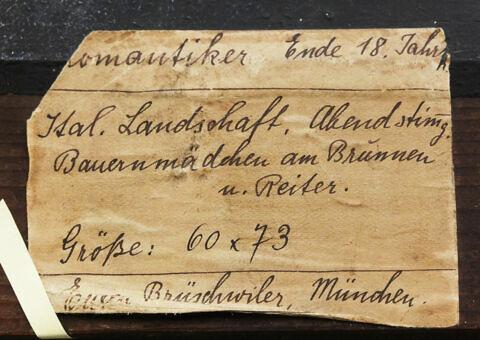 Romantiker Ende 18. Jahrh
Ital. Landschaft, Abendstimg.
Bauernmädchen am Brunnen
u. Reiter.
Größe: 60 x 73
Brüschwiler, München.